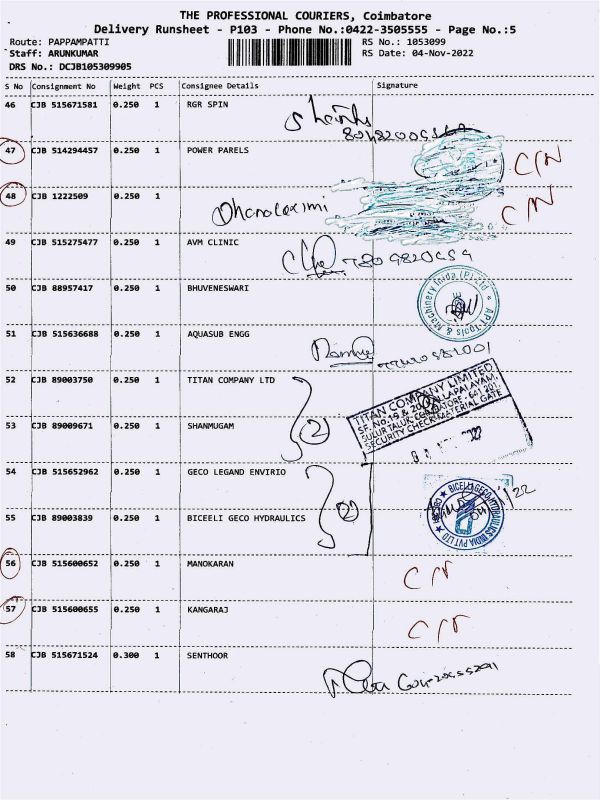 THE PROFESSIONAL COURIERS, Coimbatore
Delivery Runsheet - P103 - Phone No.:0422-3505555 - Page No.:5
Route: PAPPAMPATTI RS No.: 1053099
Staff: ARUNKUMAR RS Date: 04-Nov-2022
DRS No.: DCJB105309905
S No Consignment No Weight PCS Consignee Details Signature
46 CJB 515671581 0.250 1 RGR SPIN
47 CJB 514294457 0.250 1 POWER PARELS C/N
48 CJB 1222509 0.250 1 Dhanalaximi C/N
49 CJB 515275477 0.250 1 AVM CLINIC
50 CJB 88957417 0.250 1 BHUVENESWARI
API Tools & Machinery India (P) Ltd
51 CJB 515636688 0.250 1 AQUASUB ENGG
52 CJB 89003750 0.250 1 TITAN COMPANY LTD
TITAN COMPANY LIMITED
SULUR TALUK, COIMBATORE - 641 201.
SECURITY CHECK MATERIAL GATE
53 CJB 89009671 0.250 1 SHANMUGAM 2
54 CJB 515652962 0.250 1 GECO LEGAND ENVIRIO
55 CJB 89003839 0.250 1 BICEELI GECO HYDRAULICS 2
BICELLI GECO HYDRAULICS INDIA PVT LTD
56 CJB 515600652 0.250 1 MANOKARAN C/N
57 CJB 515600655 0.250 1 KANGARAJ C/N
58 CJB 515671524 0.300 1 SENTHOOR